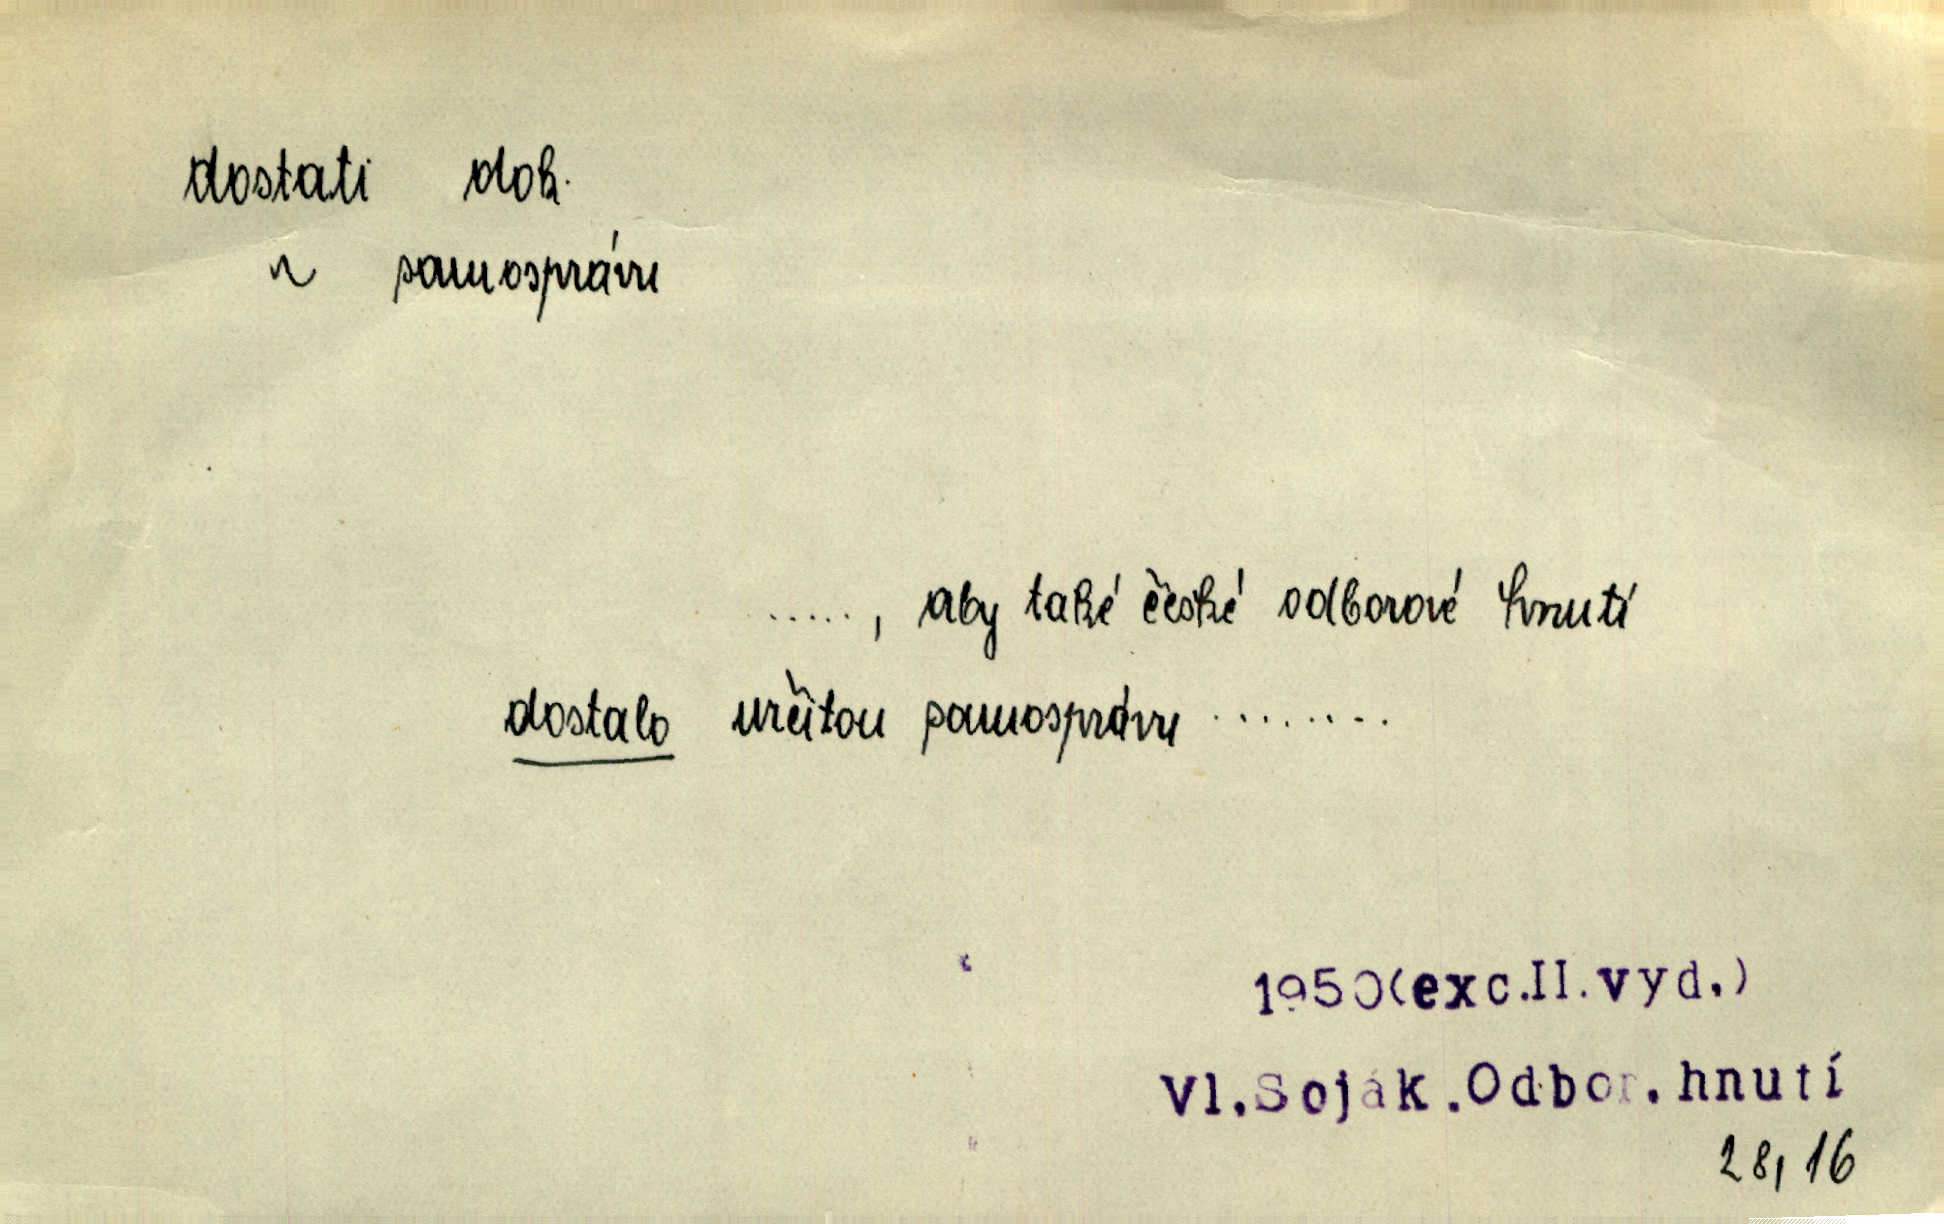 dostati dok.
~ samosprávu
....., aby také české odborové hnutí
dostalo určitou samosprávu ........
1950(exc.II.vyd.)
Vl.Soják.Odbor.hnutí
28, 16